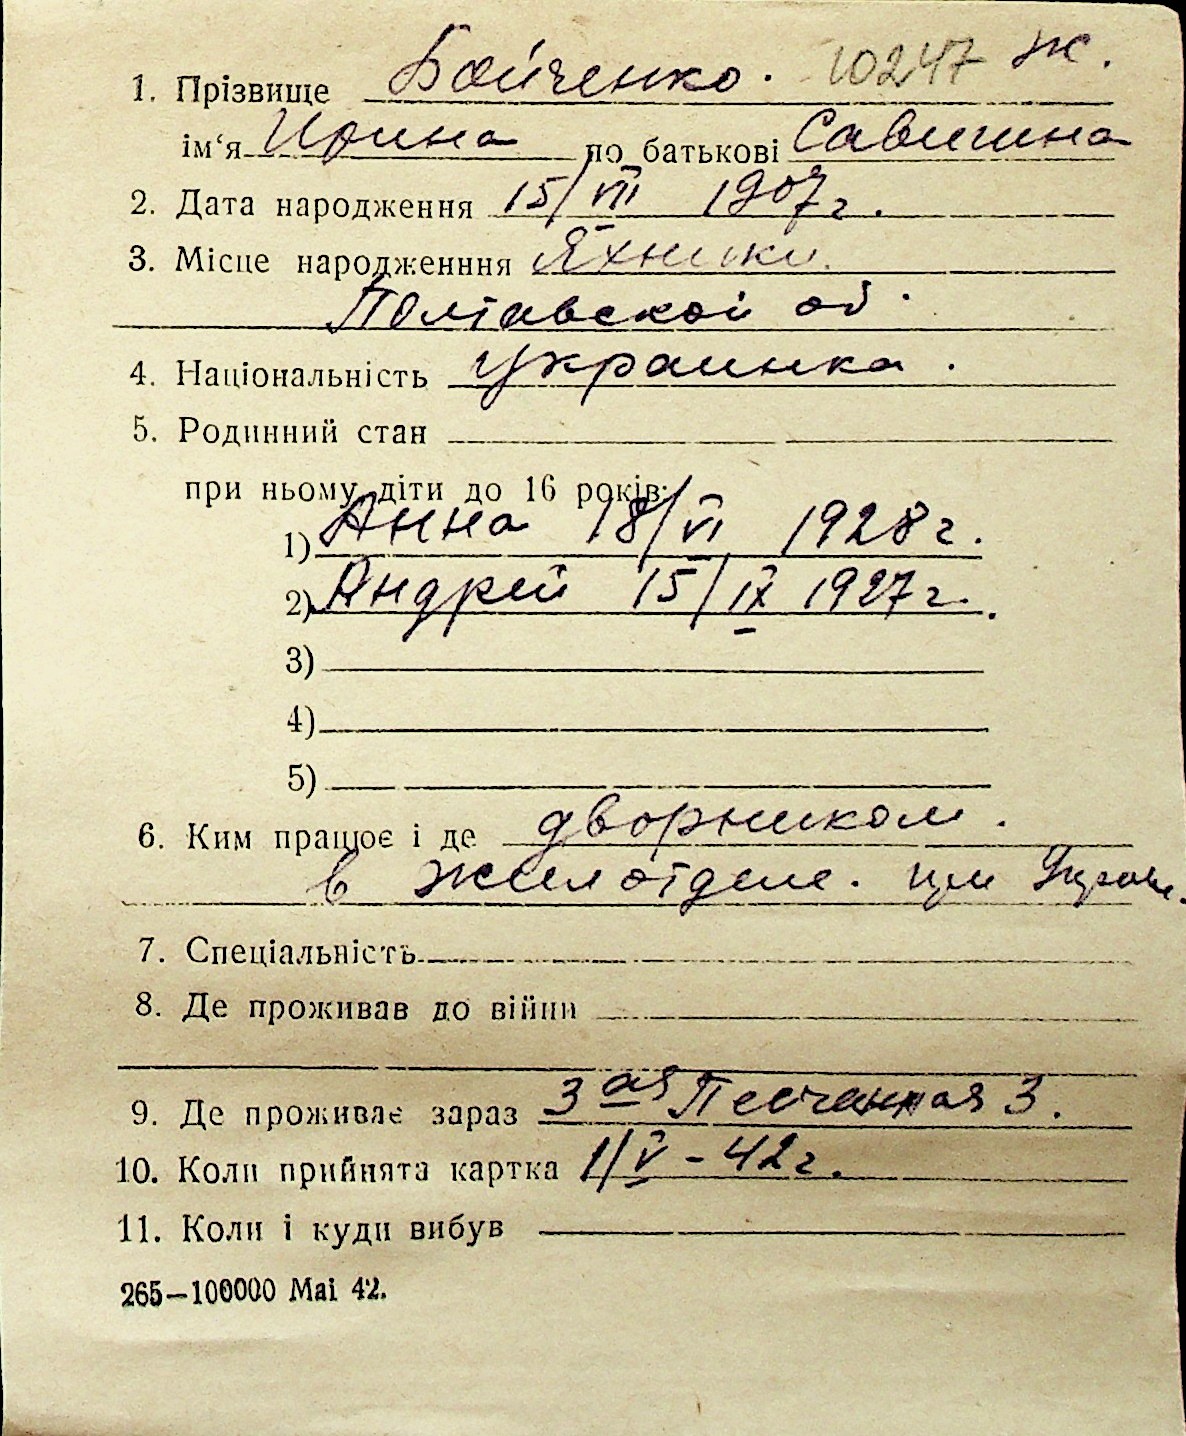 1. Прізвище Бойченко. 10247 ж.
ім‘я Ирина по батькові Савишна
2. Дата народження 15/VII 1907 г.
3. Місце народженння Яхники
Полтавской об.
4. Національність украинка.
5. Родинний стан
при ньому діти до 16 років:
1) Анна 18/VI 1928 г.
2) Андрей 15/IX 1927 г.
3)
4)
5)
6. Ким працює і де дворником.
в жилотделе. при
7. Спеціальність
8. Де проживав до війни
9. Де проживає зараз 3ая Песчанная 3.
10. Коли прийнята картка 1/V-42 г.
11. Коли і куди вибув
265—100000 Mai 42.